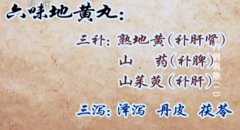 六味地黄丸：
三补：熟地黄（补肝肾）
山 药（补脾）
山茱萸（补肝）
三泻：泽泻 丹皮 茯苓